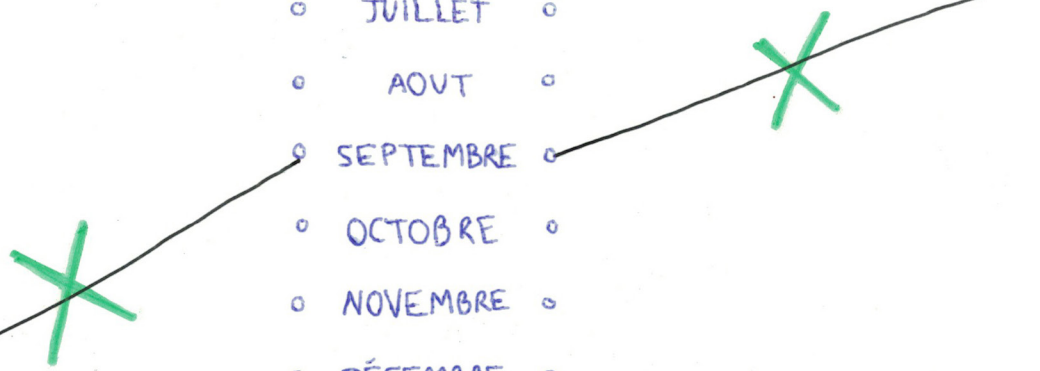 JUILLET
AOUT
SEPTEMBRE
OCTOBRE
NOVEMBRE
DÉCEMBRE